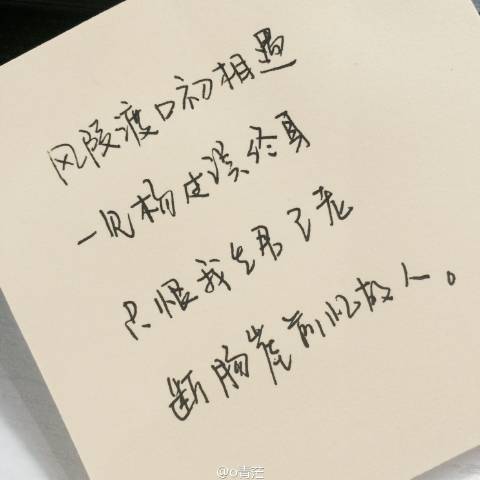 风陵渡口初相遇
一见杨过误终身
只恨我生君已老
断肠崖前忆故人。
@o青茫